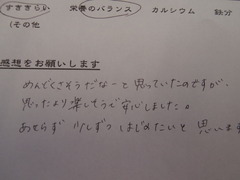 すききらい 栄養のバランス カルシウム 鉄分
(その他
感想をお願いします
めんどくさそうだなーと思っていたのですが、
思ったより楽しそうで安心しました。
あせらず 少しずつ はじめたいと 思います